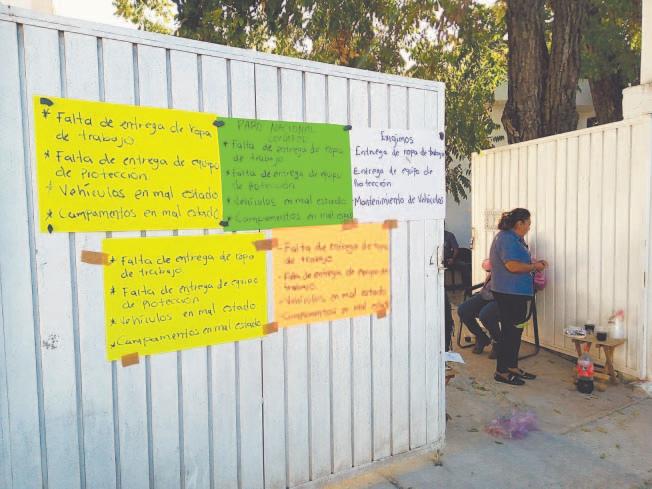 * Falta de entrega de ropa
de trabajo
* Falta de entrega de equipo
de Protección
* Vehículos en mal estado
* Campamentos en mal estado
PARO NACIONAL
* Falta de entrega de ropa
de trabajo
* Falta de entrega de equipo
de Protección
* Vehículos en mal estado
* Campamentos en mal estado
Exigimos
Entrega de ropa de trabajo
Entrega de equipo de
Protección
Mantenimiento de Vehículos
* Falta de entrega de ropa
de trabajo
* Falta de entrega de equipo
de Protección
* Vehículos en mal estado
* Campamentos en mal estado
* Falta de entrega de ropa
de trabajo
* Falta de entrega de equipo de
trabajo
* Vehículos en mal estado
* Campamentos en mal estado